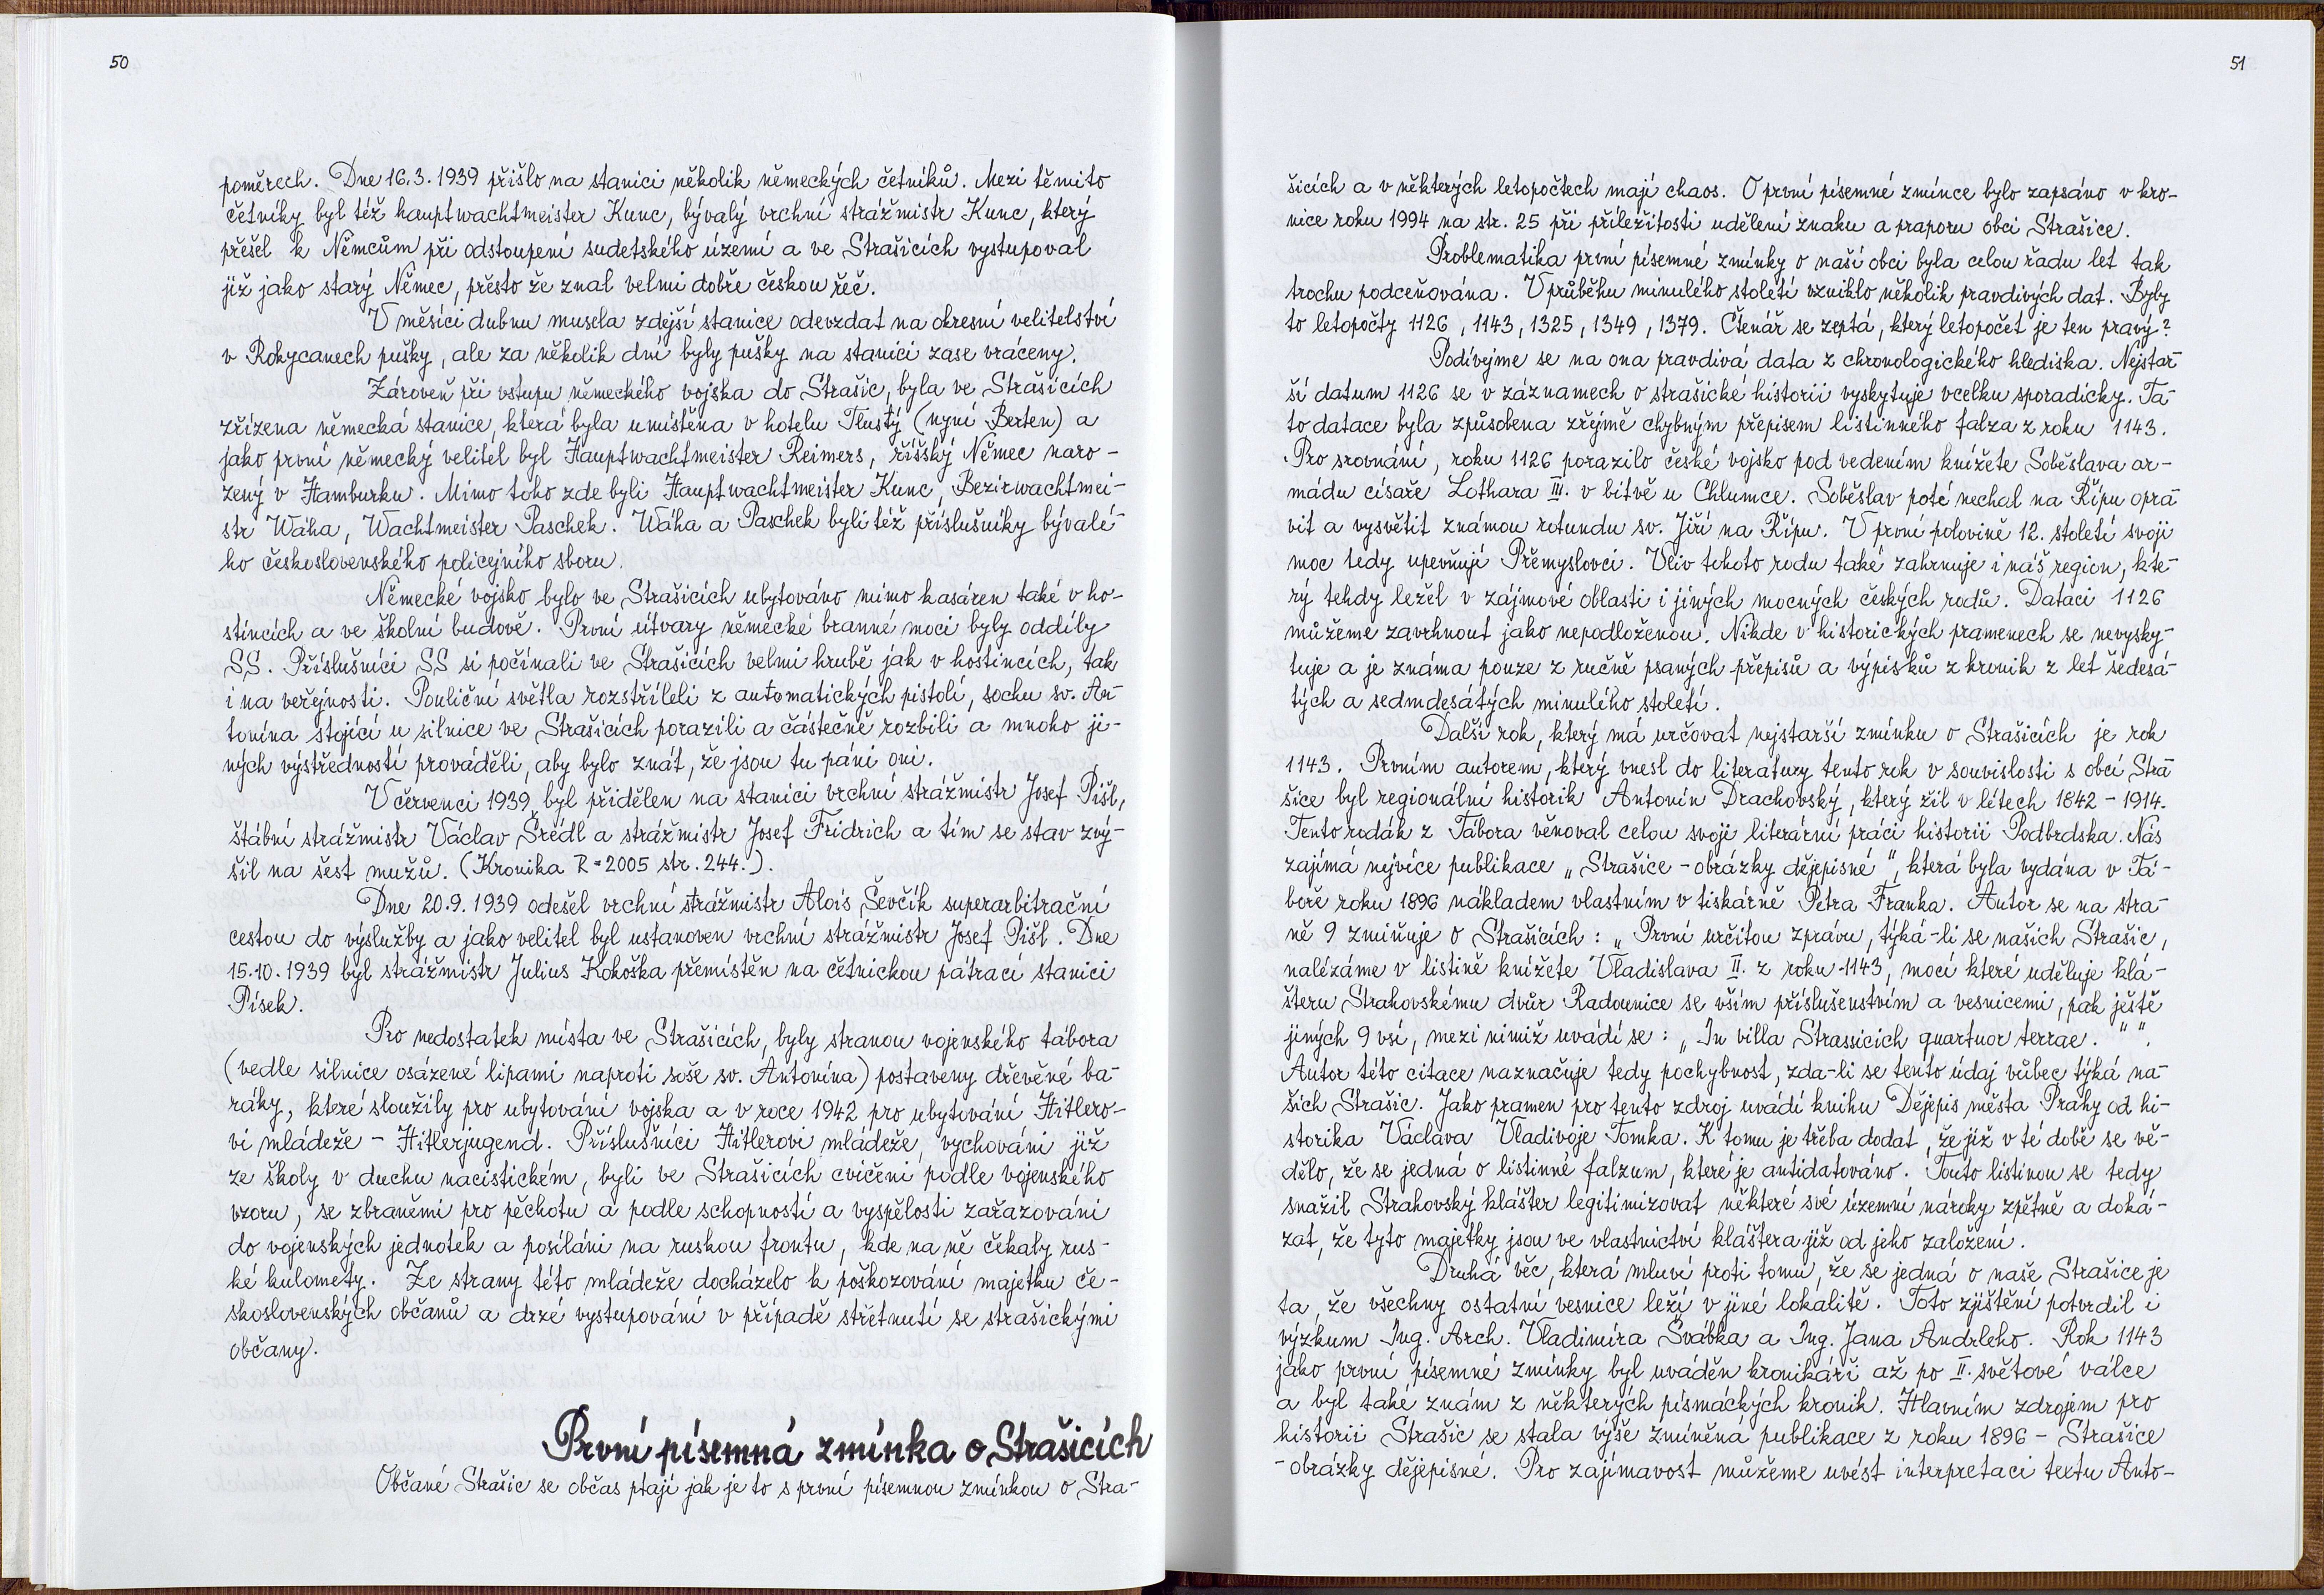 50
poměrech. Dne 16.3.1939 přišlo na stanici několik německých četníků. Mezi těmito
četníky byl též hauptwachtmeister Kunc, bývalý vrchní strážmistr Kunc, který
přešel k Němcům při odstoupení sudetského území a ve Strašicích vystupoval
již jako starý Němec, přesto že znal velmi dobře českou řeč.
V měsíci dubnu musela zdejší stanice odevzdat na okresní velitelství
v Rokycanech pušky, ale za několik dní byly pušky na stanici zase vráceny.
Zároveň při vstupu německého vojska do Strašic, byla ve Strašicích
zřízena německá stanice, která byla umístěna v hotelu Tlustý (nyní Berten) a
jako první německý velitel byl Hauptwachtmeister Reimers, říšský Němec naro-
zený v Hamburku. Mimo toho zde byli Hauptwachtmeister Kunc, Bezirwachtmei-
str Wáha, Wachtmeister Paschek. Wáha a Paschek byli též příslušníky bývalé-
ho československého policejního sboru.
Německé vojsko bylo ve Strašicích ubytováno mimo kasáren také v ho-
stincích a ve školní budově. První útvary německé branné moci byly oddíly
SS. Příslušníci SS si počínali ve Strašicích velmi hrubě jak v hostincích, tak
i na veřejnosti. Pouliční světla rozstříleli z automatických pistolí, sochu sv. An-
tonína stojící u silnice ve Strašicích porazili a částečně rozbili a mnoho ji-
ných výstředností prováděli, aby bylo znát, že jsou tu páni oni.
V červenci 1939 byl přidělen na stanici vrchní strážmistr Josef Pišl,
štábní strážmistr Václav Šrédl a strážmistr Josef Fridrich a tím se stav zvý-
šil na šest mužů. (Kronika R=2005 str. 244.).
Dne 20.9.1939 odešel vrchní strážmistr Alois Ševčík superarbitrační
cestou do výslužby a jako velitel byl ustanoven vrchní strážmistr Josef Pišl. Dne
15.10.1939 byl strážmistr Julius Kokoška přemístěn na četnickou pátrací stanici
Písek.
Pro nedostatek místa ve Strašicích, byly stranou vojenského tábora
(vedle silnice osázené lipami naproti soše sv. Antonína) postaveny dřevěné ba-
ráky, které sloužily pro ubytování vojska a v roce 1942 pro ubytování Hitlero-
vi mládeže - Hitlerjugend. Příslušníci Hitlerovi mládeže, vychováni již
ze školy v duchu nacistickém, byli ve Strašicích cvičeni podle vojenského
vzoru, se zbraněmi pro pěchotu a podle schopností a vyspělosti zařazováni
do vojenských jednotek a posíláni na ruskou frontu, kde na ně čekaly rus-
ké kulomety. Ze strany této mládeže docházelo k poškozování majetku če-
skoslovenských občanů a drzé vystupování v případě střetnutí se strašickými
občany.
První písemná zmínka o Strašicích
Občané Strašic se občas ptají jak je to s první písemnou zmínkou o Stra-
51
šicích a v některých letopočtech mají chaos. O první písemné zmínce bylo zapsáno v kro-
nice roku 1994 na str. 25 při příležitosti udělení znaku a praporu obci Strašice.
Problematika první písemné zmínky o naší obci byla celou řadu let tak
trochu podceňována. V průběhu minulého století vzniklo několik pravdivých dat. Byly
to letopočty 1126, 1143, 1325, 1349, 1379. Čtenář se zeptá, který letopočet je ten pravý?
Podívejme se na ona pravdivá data z chronologického hlediska. Nejstar-
ší datum 1126 se v záznamech o strašické historii vyskytuje vcelku sporadicky. Ta-
to datace byla způsobena zřejmě chybným přepisem listinného falza z roku 1143.
Pro srovnání, roku 1126 porazilo české vojsko pod vedením knížete Soběslava ar-
mádu císaře Lothara III. v bitvě u Chlumce. Soběslav poté nechal na Řípu opra-
vit a vysvětit známou rotundu sv. Jiří na Řípu. V první polovině 12. století svoji
moc tedy upevňují Přemyslovci. Vliv tohoto rodu také zahrnuje i náš region, kte-
rý tehdy ležel v zájmové oblasti i jiných mocných českých rodů. Dataci 1126
můžeme zavrhnout jako nepodloženou. Nikde v historických pramenech se nevysky-
tuje a je známa pouze z ručně psaných přepisů a výpisků z kronik z let šedesá-
tých a sedmdesátých minulého století.
Další rok, který má určovat nejstarší zmínku o Strašicích je rok
1143. Prvním autorem, který vnesl do literatury tento rok v souvislosti s obcí Stra-
šice byl regionální historik Antonín Drachovský, který žil v létech 1842 - 1914.
Tento rodák z Tábora věnoval celou svoji literární práci historii Podbrdska. Nás
zajímá nejvíce publikace „Strašice - obrázky dějepisné", která byla vydána v Tá-
boře roku 1896 nákladem vlastním v tiskárně Petra Franka. Autor se na stra-
ně 9 zmiňuje o Strašicích: „První určitou zprávu, týká-li se našich Strašic,
nalézáme v listině knížete Vladislava II. z roku 1143, mocí které uděluje klá-
šteru Strahovskému dvůr Radounice se vším příslušenstvím a vesnicemi, pak ještě
jiných 9 vsí, mezi nimiž uvádí se: „In villa Strassicich quartuor terrae." ".
Autor této citace naznačuje tedy pochybnost, zda-li se tento údaj vůbec týká na-
šich Strašic. Jako pramen pro tento zdroj uvádí knihu Dějepis města Prahy od hi-
storika Václava Vladivoje Tomka. K tomu je třeba dodat, že již v té době se vě-
dělo, že se jedná o listinné falzum, které je antidatováno. Touto listinou se tedy
snažil Strahovský klášter legitimizovat některé své územní nároky zpětně a doká-
zat, že tyto majetky jsou ve vlastnictví kláštera již od jeho založení.
Druhá věc, která mluví proti tomu, že se jedná o naše Strašice je
ta, že všechny ostatní vesnice leží v jiné lokalitě. Toto zjištění potvrdil i
výzkum Ing. Arch. Vladimíra Švábka a Ing. Jana Andrleho. Rok 1143
jako první písemné zmínky byl uváděn kronikáři až po II. světové válce
a byl také znám z některých písmáckých kronik. Hlavním zdrojem pro
historii Strašic se stala výše zmíněná publikace z roku 1896 - Strašice
- obrázky dějepisné. Pro zajímavost můžeme uvést interpretaci textu Anto-